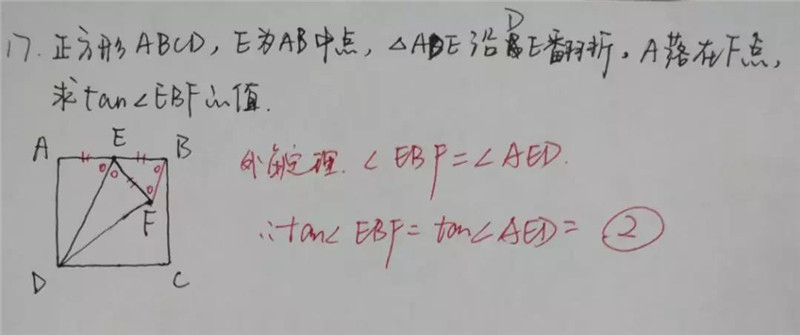 17. 正方形ABCD, E为AB中点, △ADE沿DE翻折, A落在F点,
求tan∠EBF的值.
A E B
外角定理. ∠EBF=∠AED.
F
∴tan∠EBF=tan∠AED= 2
D C